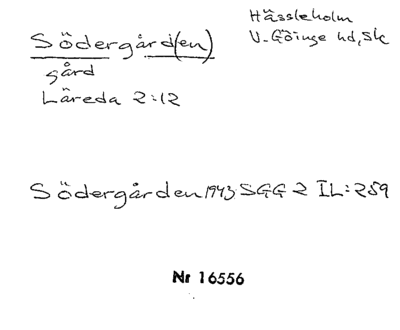 Södergård(en)
gård
Läreda 2:12
Hässleholm
V-Göinge hd, Sk
Södergården 1943 SGG 2 IL:259
Nr 16556